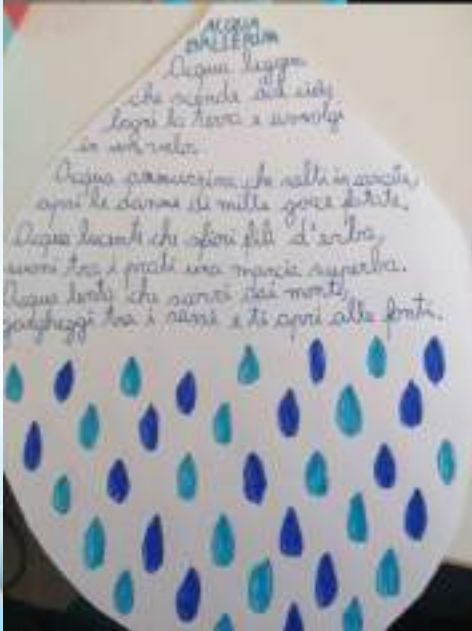 ACQUA
BALLERINA
Acqua leggera
che scende dal cielo
bagni la terra e avvolgi
in un velo.
Acqua che salti in
apri le danze di mille gocce fatate.
Acqua lucente che sfiori fili d'erba,
suoni tra i prati una marcia superba.
Acqua lenta che scorri dai monti,
gorgheggi tra i sassi e ti apri alle fonti.